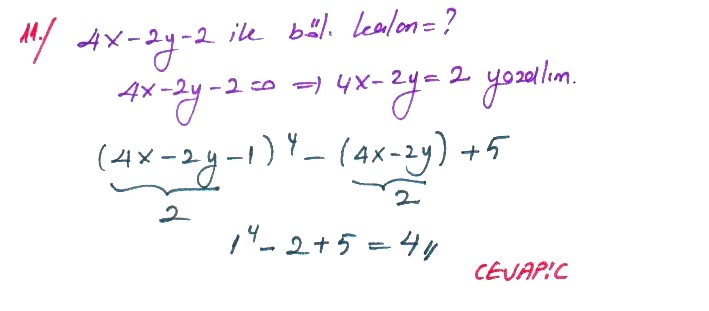 11./ 4x-2y-2 ile böl. kalan=?
4x-2y-2=0 => 4x-2y=2 yazalım.
(4x-2y-1)⁴-(4x-2y)+5
2 2
1⁴-2+5=4//
CEVAP:C